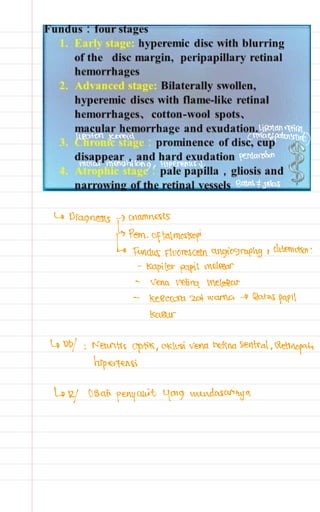 Fundus : four stages
1. Early stage: hyperemic disc with blurring
of the disc margin, peripapillary retinal
hemorrhages
2. Advanced stage: Bilaterally swollen,
hyperemic discs with flame-like retinal
hemorrhages、cotton-wool spots、
macular hemorrhage and exudation
3. Chronic stage : prominence of disc, cup
disappear , and hard exudation
4. Atrophic stage : pale papilla , gliosis and
narrowing of the retinal vessels Batas jelas
↳ Diagnosis → anamnesis
↳ Pem. oftalmoskopi
↳ Fundus Fluorescein angiography, ditemukan:
- Kapiler papil melebar
- Vena retina melebar
- Kebocoran zat warna → Batas papil
kabur
↳ DD/ : Neuritis optik, oklusi vena retina sentral, Retinopati
hipertensi
↳ R/ Obati penyakit yang mendasarinya